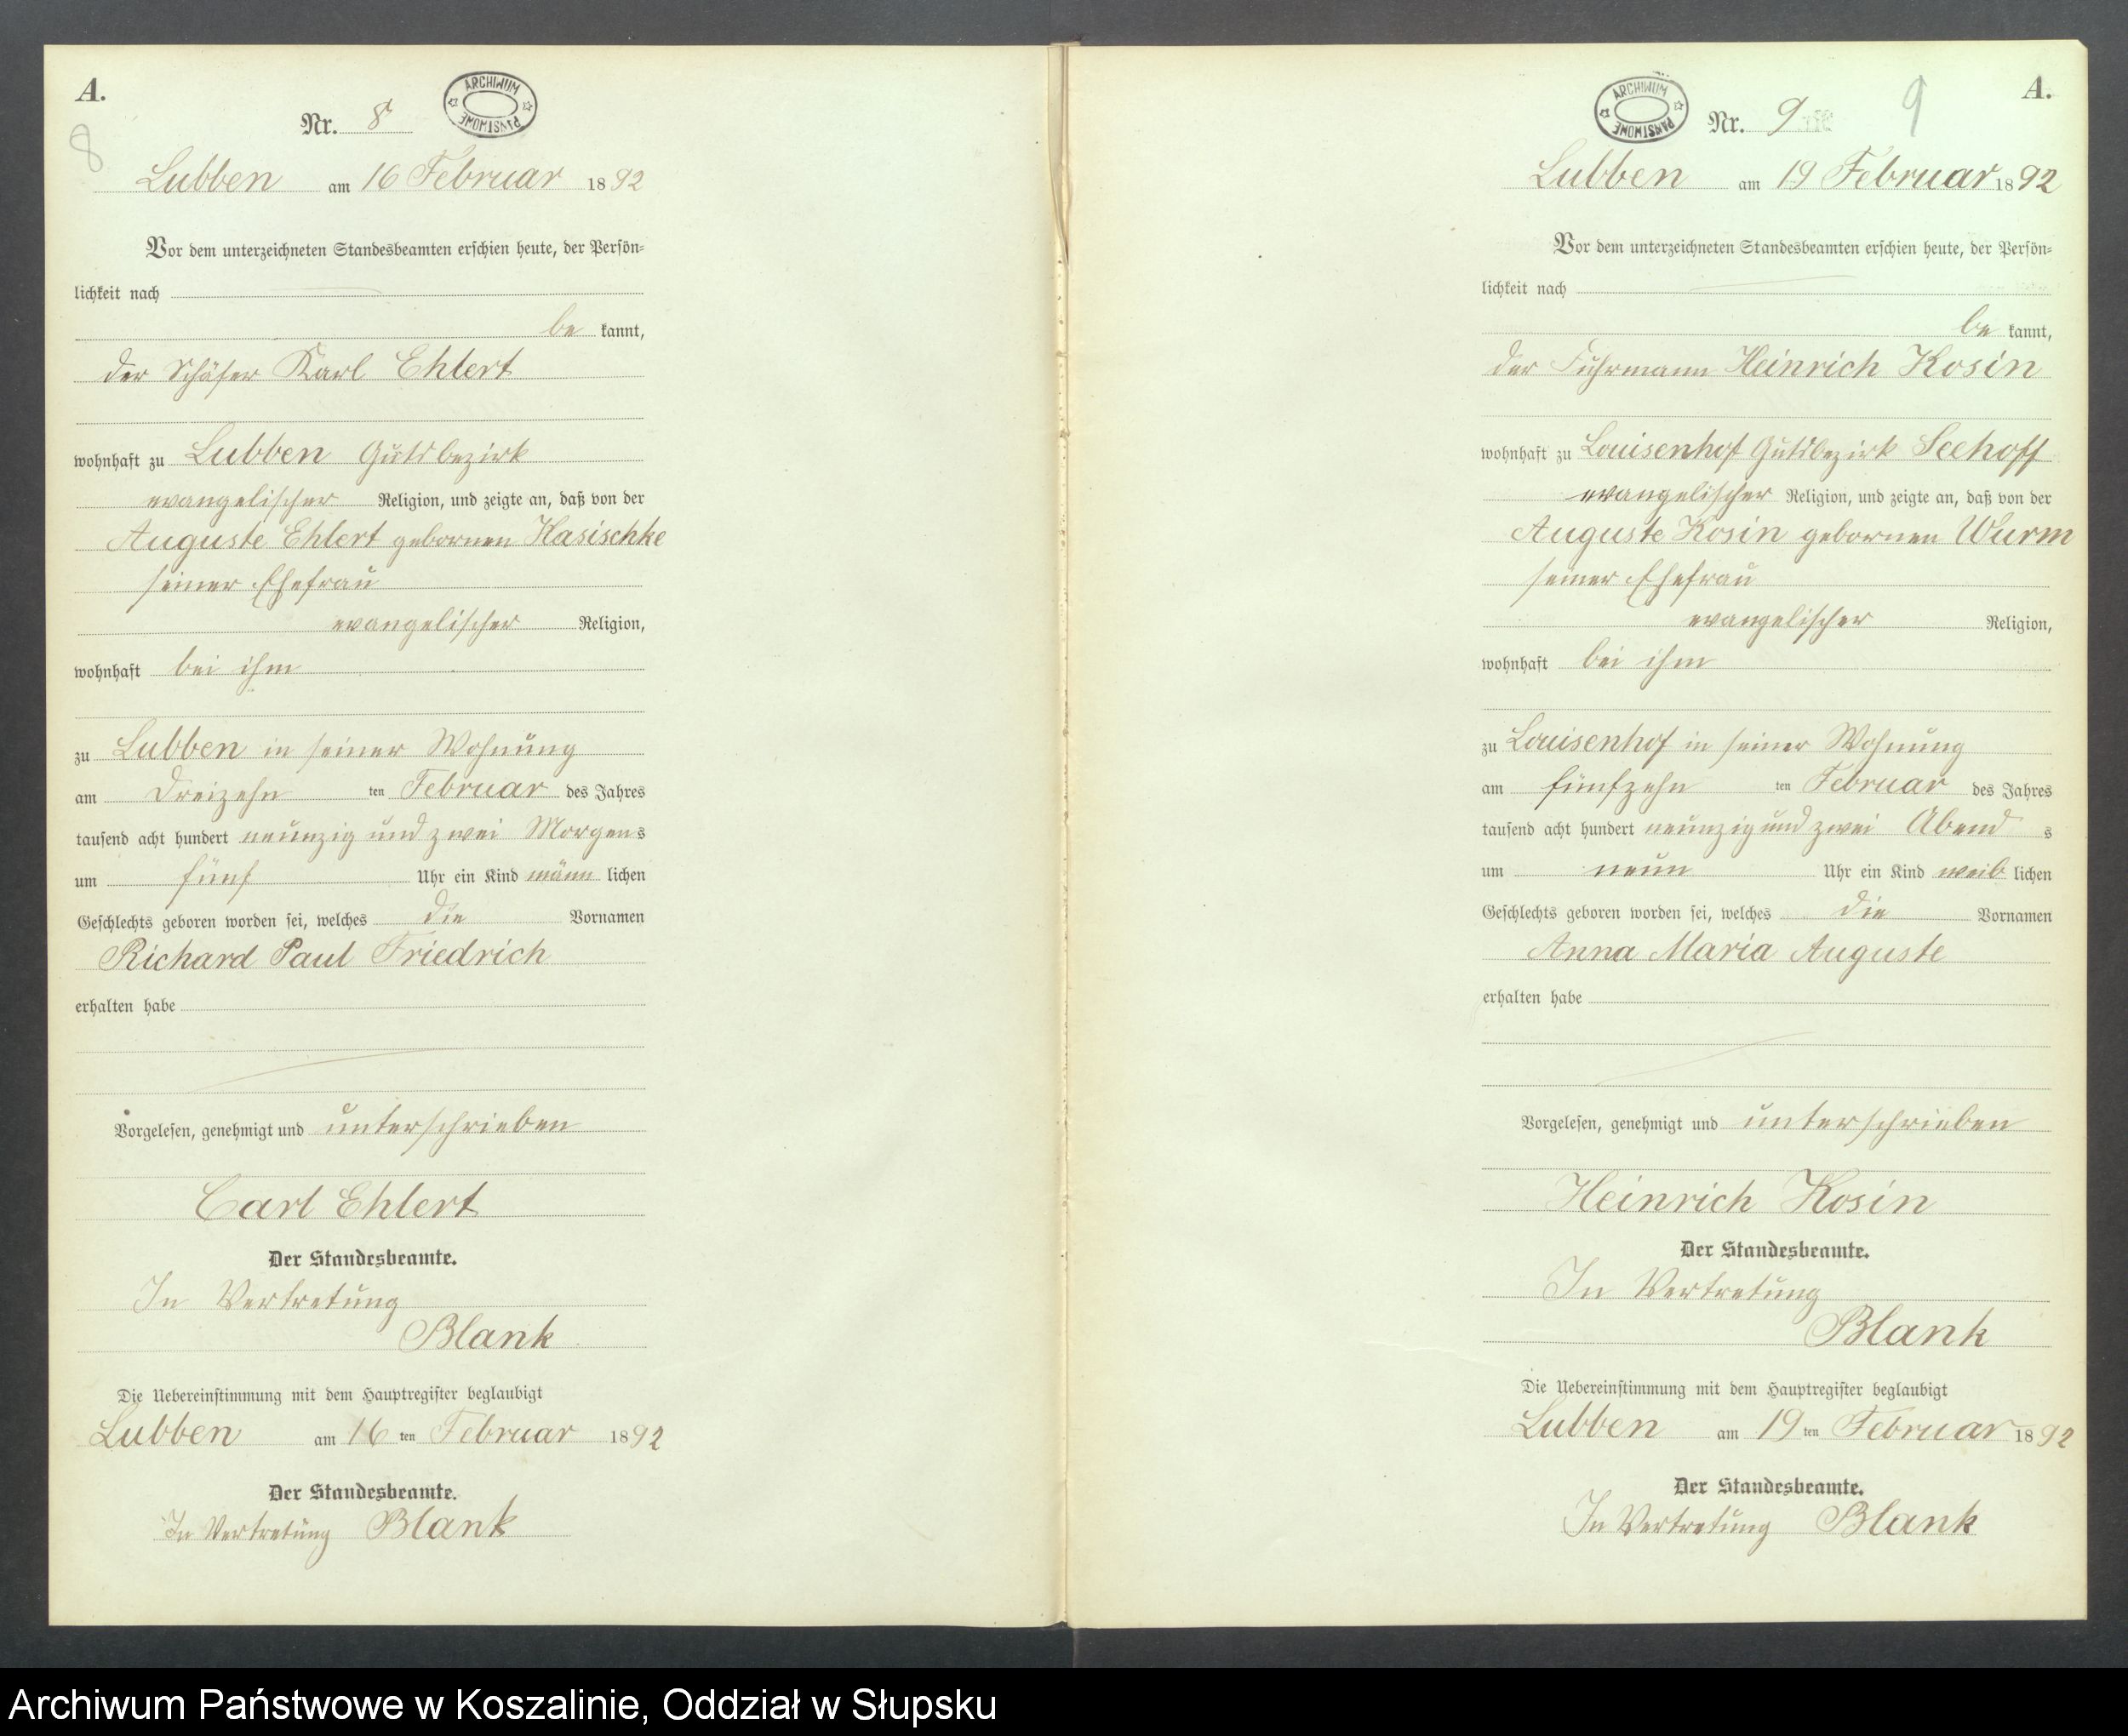 A.
8
Nr. 8
ARCHIWUM PAŃSTWOWE
Lubben am 16 Februar 1892
Vor dem unterzeichneten Standesbeamten erschien heute, der Persön=
lichkeit nach
be kannt,
der Schäfer Karl Ehlert
wohnhaft zu Lubben Gutsbezirk
evangelischer Religion, und zeigte an, daß von der
Auguste Ehlert gebornen Kasischke
seiner Ehefrau
evangelischer Religion,
wohnhaft bei ihm
zu Lubben in seiner Wohnung
am dreizehn ten Februar des Jahres
tausend acht hundert neunzig und zwei Morgens
um fünf Uhr ein Kind männ lichen
Geschlechts geboren worden sei, welches die Vornamen
Richard Paul Friedrich
erhalten habe
Vorgelesen, genehmigt und unterschrieben
Carl Ehlert
Der Standesbeamte.
In Vertretung
Blank
Die Uebereinstimmung mit dem Hauptregister beglaubigt
Lubben am 16 ten Februar 1892
Der Standesbeamte.
In Vertretung Blank
A.
9
ARCHIWUM PAŃSTWOWE
Nr. 9
Lubben am 19 Februar 1892
Vor dem unterzeichneten Standesbeamten erschien heute, der Persön=
lichkeit nach
be kannt,
der Fuhrmann Heinrich Kosin
wohnhaft zu Louisenhof Gutsbezirk Seehoff
evangelischer Religion, und zeigte an, daß von der
Auguste Kosin gebornen Wurm
seiner Ehefrau
evangelischer Religion,
wohnhaft bei ihm
zu Louisenhof in seiner Wohnung
am fünfzehn ten Februar des Jahres
tausend acht hundert neunzig und zwei Abend s
um neun Uhr ein Kind weib lichen
Geschlechts geboren worden sei, welches die Vornamen
Anna Maria Auguste
erhalten habe
Vorgelesen, genehmigt und unterschrieben
Heinrich Kosin
Der Standesbeamte.
In Vertretung
Blank
Die Uebereinstimmung mit dem Hauptregister beglaubigt
Lubben am 19 ten Februar 1892
Der Standesbeamte.
In Vertretung Blank
Archiwum Państwowe w Koszalinie, Oddział w Słupsku